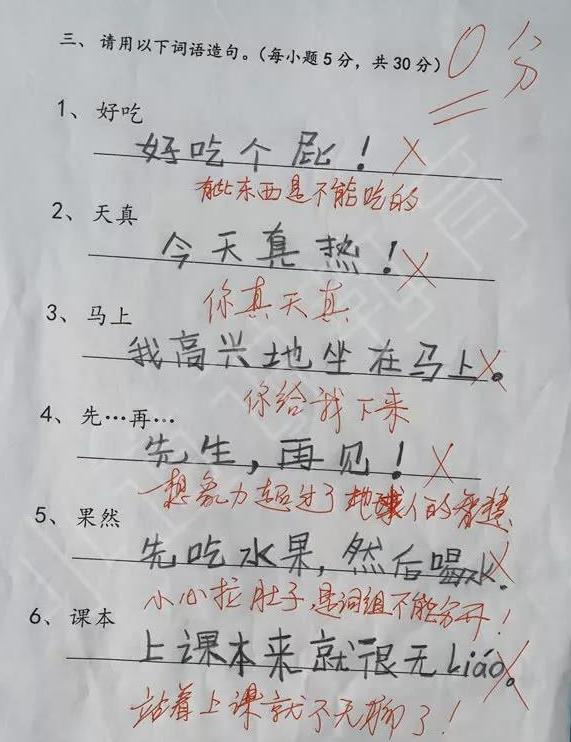 三、请用以下词语造句。（每小题5分，共30分）
0分
1、好吃
好吃个屁！
有些东西是不能吃的
2、天真
今天真热！
你真天真
3、马上
我高兴地坐在马上。
你给我下来
4、先…再…
先生，再见！
想象力超过了地球人的智慧
5、果然
先吃水果，然后喝水。
小心拉肚子，是词组不能分开！
6、课本
上课本来就很无liáo。
站着上课就不无聊了！